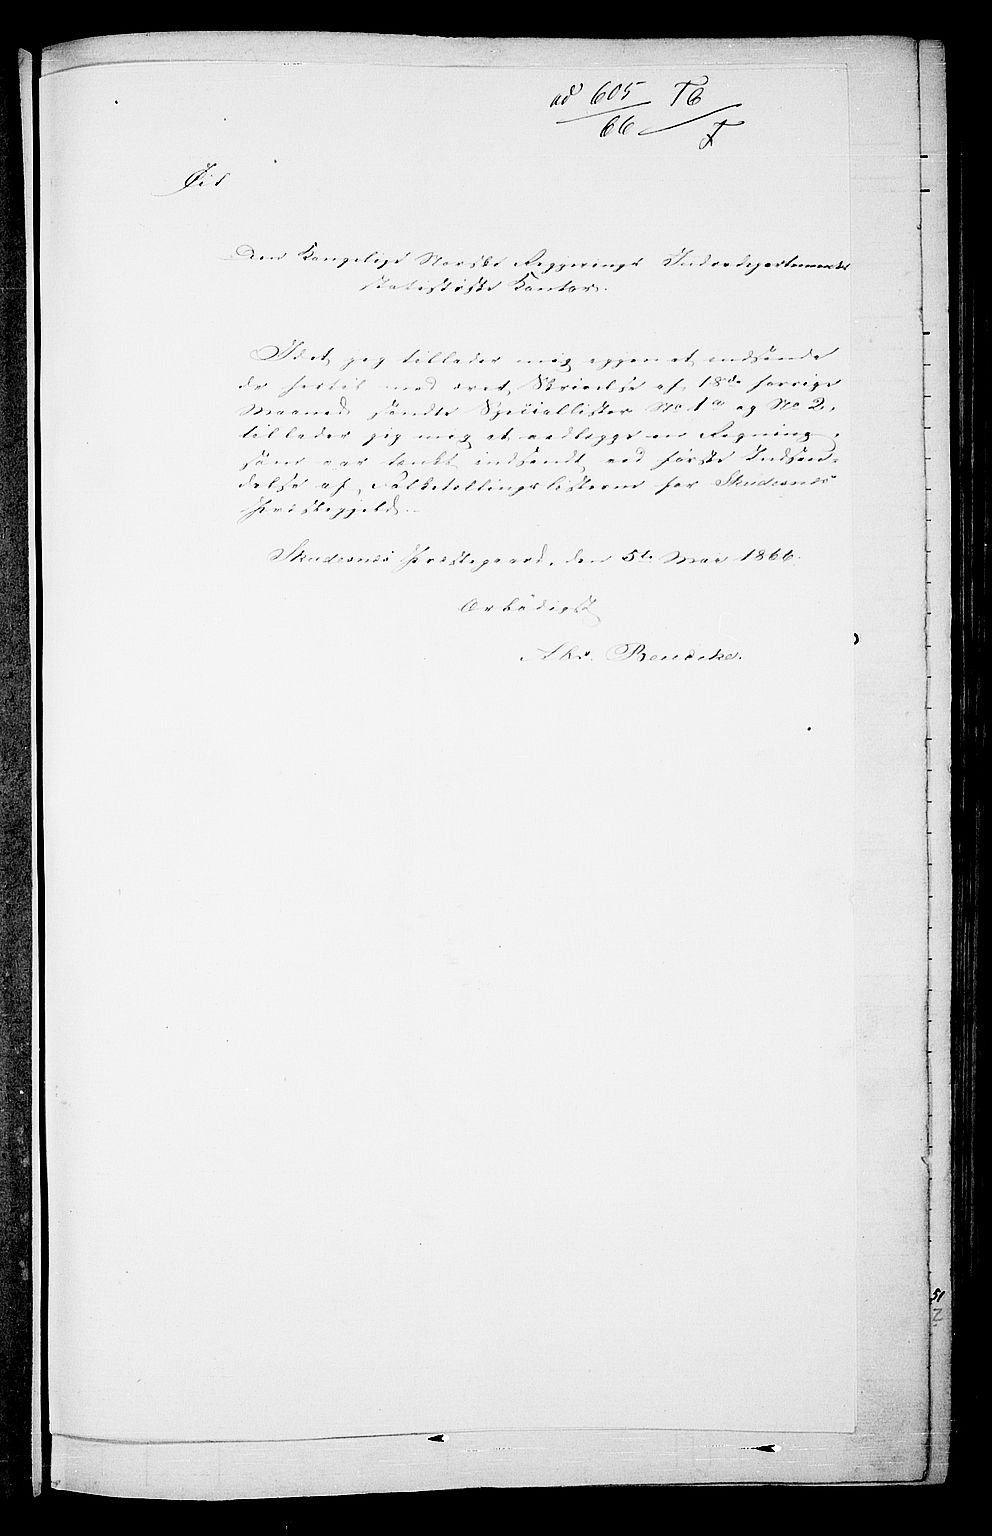 ad 605 T6
66 F
Til
Den Kongelige Norske Regjerings Indredepartements
statistiske Kontor.
Idet jeg tillader mig igjen at indsende
de hertil med æret Skrivelse af 18de forrige
Maaned sendte Speciallister No 1a og No 2,
tillader jeg mig at vedlægge en Regning,
som var tænkt indsendt ved første Indsen-
delse af Folketællingslisterne for Skudesnæs
Præstegjeld.
Skudesnæs Præstegaard, den 5te Mai 1866.
Ærbødigst
51
2